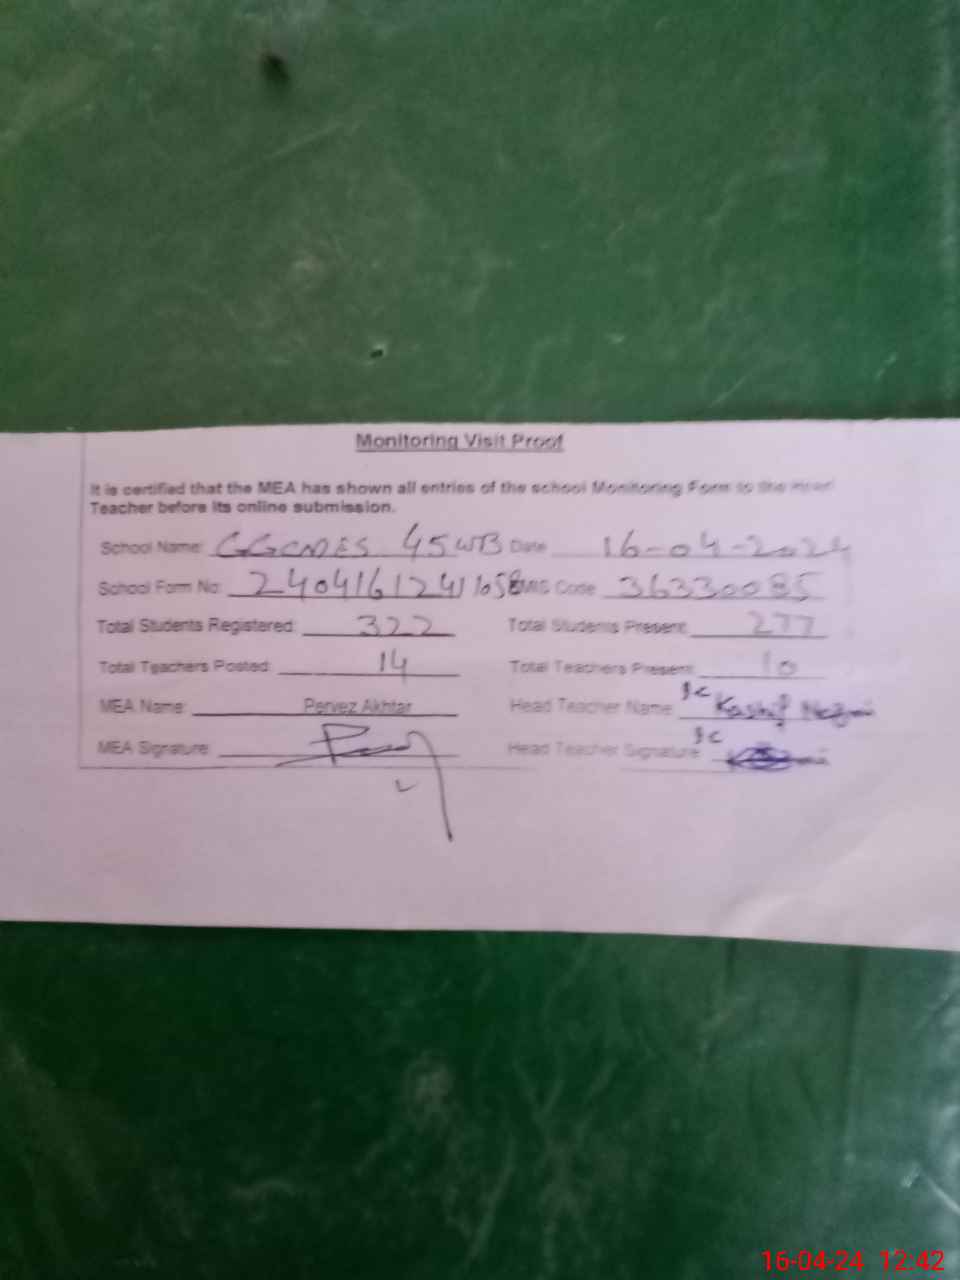 Monitoring Visit Proof
It is certified that the MEA has shown all entries of the school Monitoring Form to the Head
Teacher before its online submission.
School Name: GGCMES 45 WB Date 16-04-2024
School Form No: 2404161241058 EMIS Code 36330085
Total Students Registered: 322 Total Students Present: 277
Total Teachers Posted: 14 Total Teachers Present: 10
MEA Name: Pervez Akhtar Head Teacher Name: Kashif
MEA Signature: Head Teacher Signature:
16-04-24 12:42